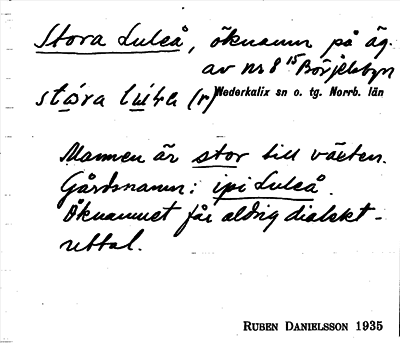 Stora Luleå, öknamn på äg.
av nr 8 15 Börjelsbyn
stora lula (r) Nederkalix sn o. tg. Norrb. län
Mannen är stor till växten.
Gårdsnamn: ipi Luleå.
Öknamnet får aldrig dialekt-
uttal.
RUBEN DANIELSSON 1935